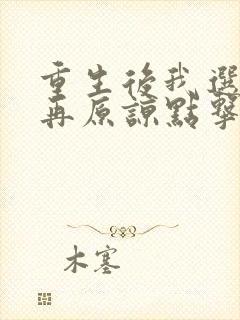 重生後我選
再原諒點擊
木塞